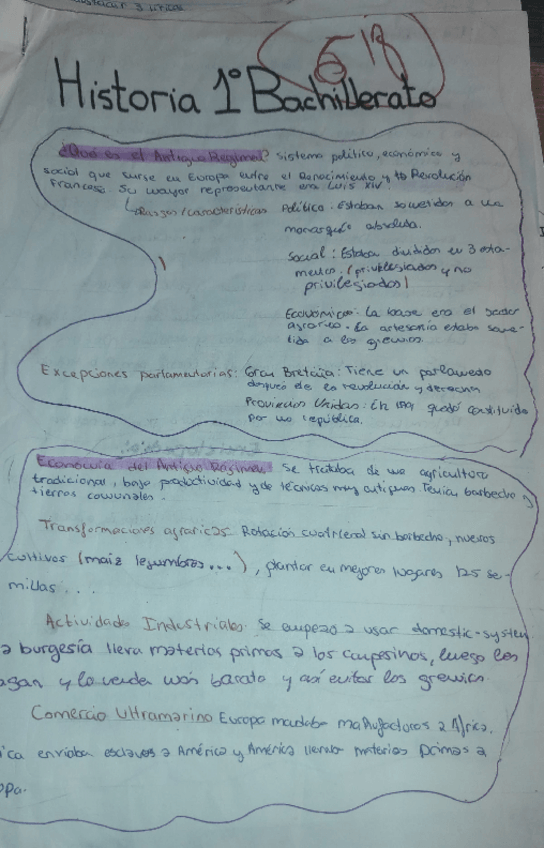 Historia 1º Bachillerato
¿Qué es el Antiguo Régimen? Sistema político, económico y
social que surge en Europa entre el Renacimiento y la Revolución
Francesa. Su mayor representante era Luis XIV.
Rasgos/características Política: Estaban sometidos a una
monarquía absoluta.
Social: Estaban divididos en 3 esta-
mentos. (privilegiados y no
privilegiados)
Económico: La base era el sector
agrario. La artesanía estaba some-
tida a los gremios.
Excepciones parlamentarias: Gran Bretaña: Tiene un parlamento
después de la revolución y derecha
Provincias Unidas: En quedó constituido
por una república.
Economía del Antiguo Régimen Se trataba de una agricultura
tradicional, baja productividad y de técnicas muy antiguas Tenían barbecho y
tierras comunales.
Transformaciones agrarias: Rotación cuatrienal sin barbecho, nuevos
cultivos (maíz legumbres...), plantar en mejores lugares las se-
millas...
Actividades Industriales: Se empezó a usar domestic-system
a burgesía lleva materias primas a los campesinos, luego los
agan y lo venda más barato y así evitar los gremios.
Comercio Ultramarino Europa mandaba manufacturas a África,
ica enviaba esclavos a América y América llevaba materias primas a
opa.